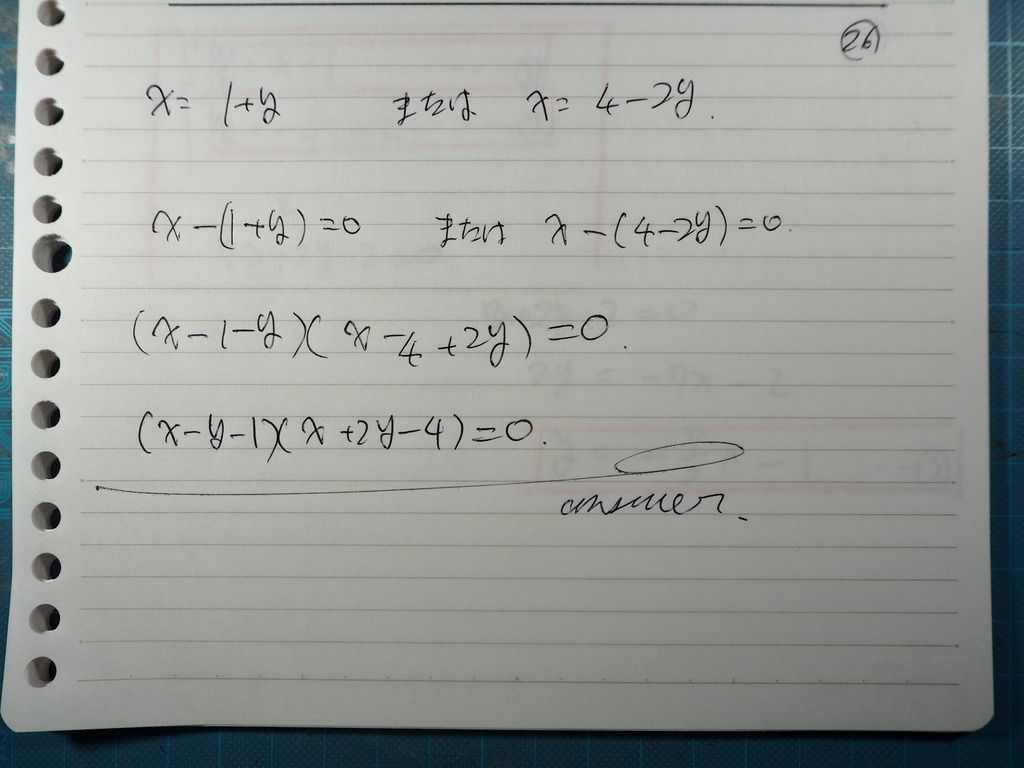 26
x = 1+y または x = 4-2y.
x-(1+y)=0 または x-(4-2y)=0.
(x-1-y)(x-4+2y)=0.
(x-y-1)(x+2y-4)=0.
answer.